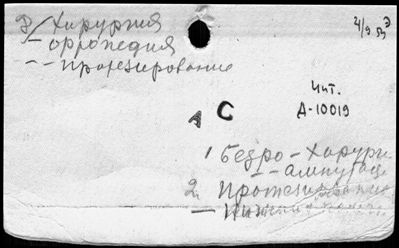 Хирургия
4/9 53
- ортопедия
-- протезирование
Чит.
Д-10019
А С
1 Бедро - Хирурги
-- ампутац
2 Протезирование
- Нижн